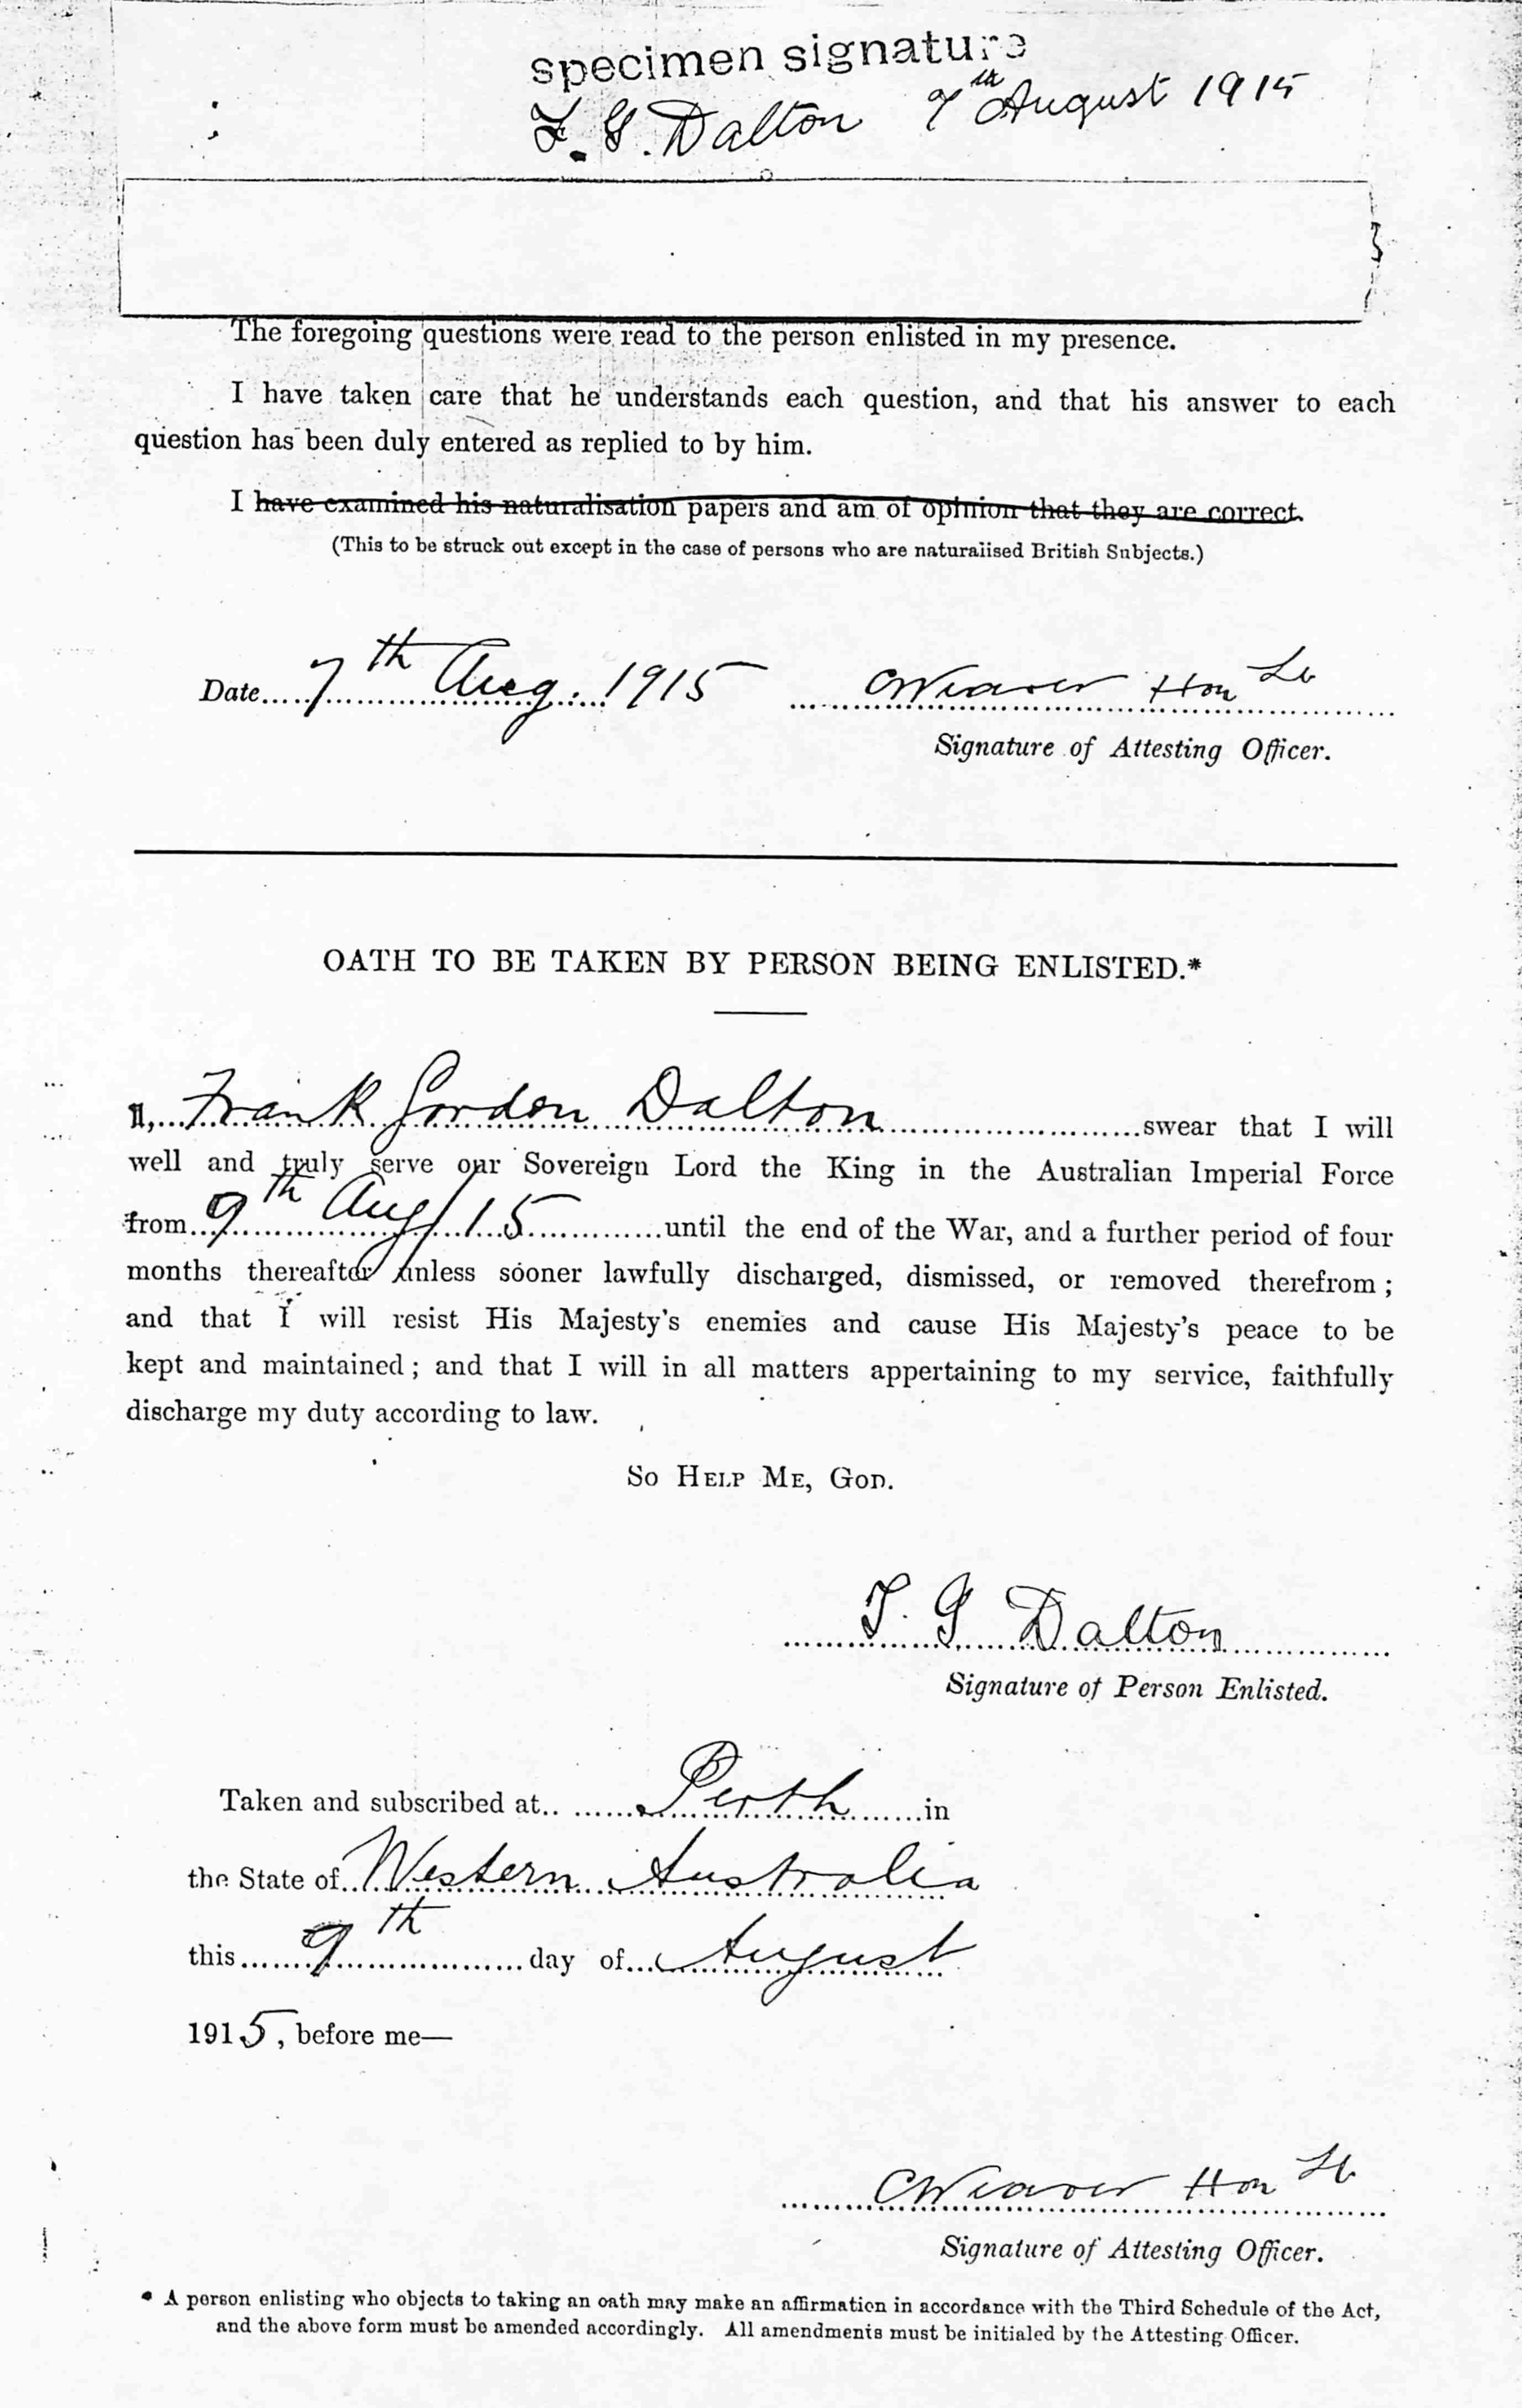 specimen signature
F. G. Dalton 7th August 1915
The foregoing questions were read to the person enlisted in my presence.
I have taken care that he understands each question, and that his answer to each
question has been duly entered as replied to by him.
I have examined his naturalisation papers and am of opinion that they are correct.
(This to be struck out except in the case of persons who are naturalised British Subjects.)
Date 7th Aug. 1915 CWeaver Hon Lt
Signature of Attesting Officer.
OATH TO BE TAKEN BY PERSON BEING ENLISTED.*
I, Frank Gordon Dalton swear that I will
well and truly serve our Sovereign Lord the King in the Australian Imperial Force
from 9th Aug/15 until the end of the War, and a further period of four
months thereafter unless sooner lawfully discharged, dismissed, or removed therefrom;
and that I will resist His Majesty's enemies and cause His Majesty's peace to be
kept and maintained; and that I will in all matters appertaining to my service, faithfully
discharge my duty according to law.
So Help Me, God.
F. G Dalton
Signature of Person Enlisted.
Taken and subscribed at Perth in
the State of Western Australia
this 9th day of August
1915, before me—
CWeaver Hon Lt
Signature of Attesting Officer.
* A person enlisting who objects to taking an oath may make an affirmation in accordance with the Third Schedule of the Act,
and the above form must be amended accordingly. All amendments must be initialed by the Attesting Officer.